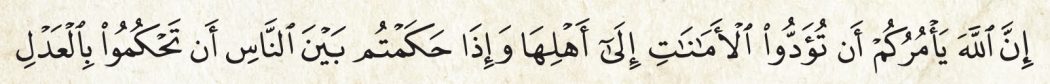 إِنَّ ٱللَّهَ يَأْمُرُكُمْ أَن تُؤَدُّوا۟ ٱلْأَمَـٰنَـٰتِ إِلَىٰٓ أَهْلِهَا وَإِذَا حَكَمْتُم بَيْنَ ٱلنَّاسِ أَن تَحْكُمُوا۟ بِٱلْعَدْلِ